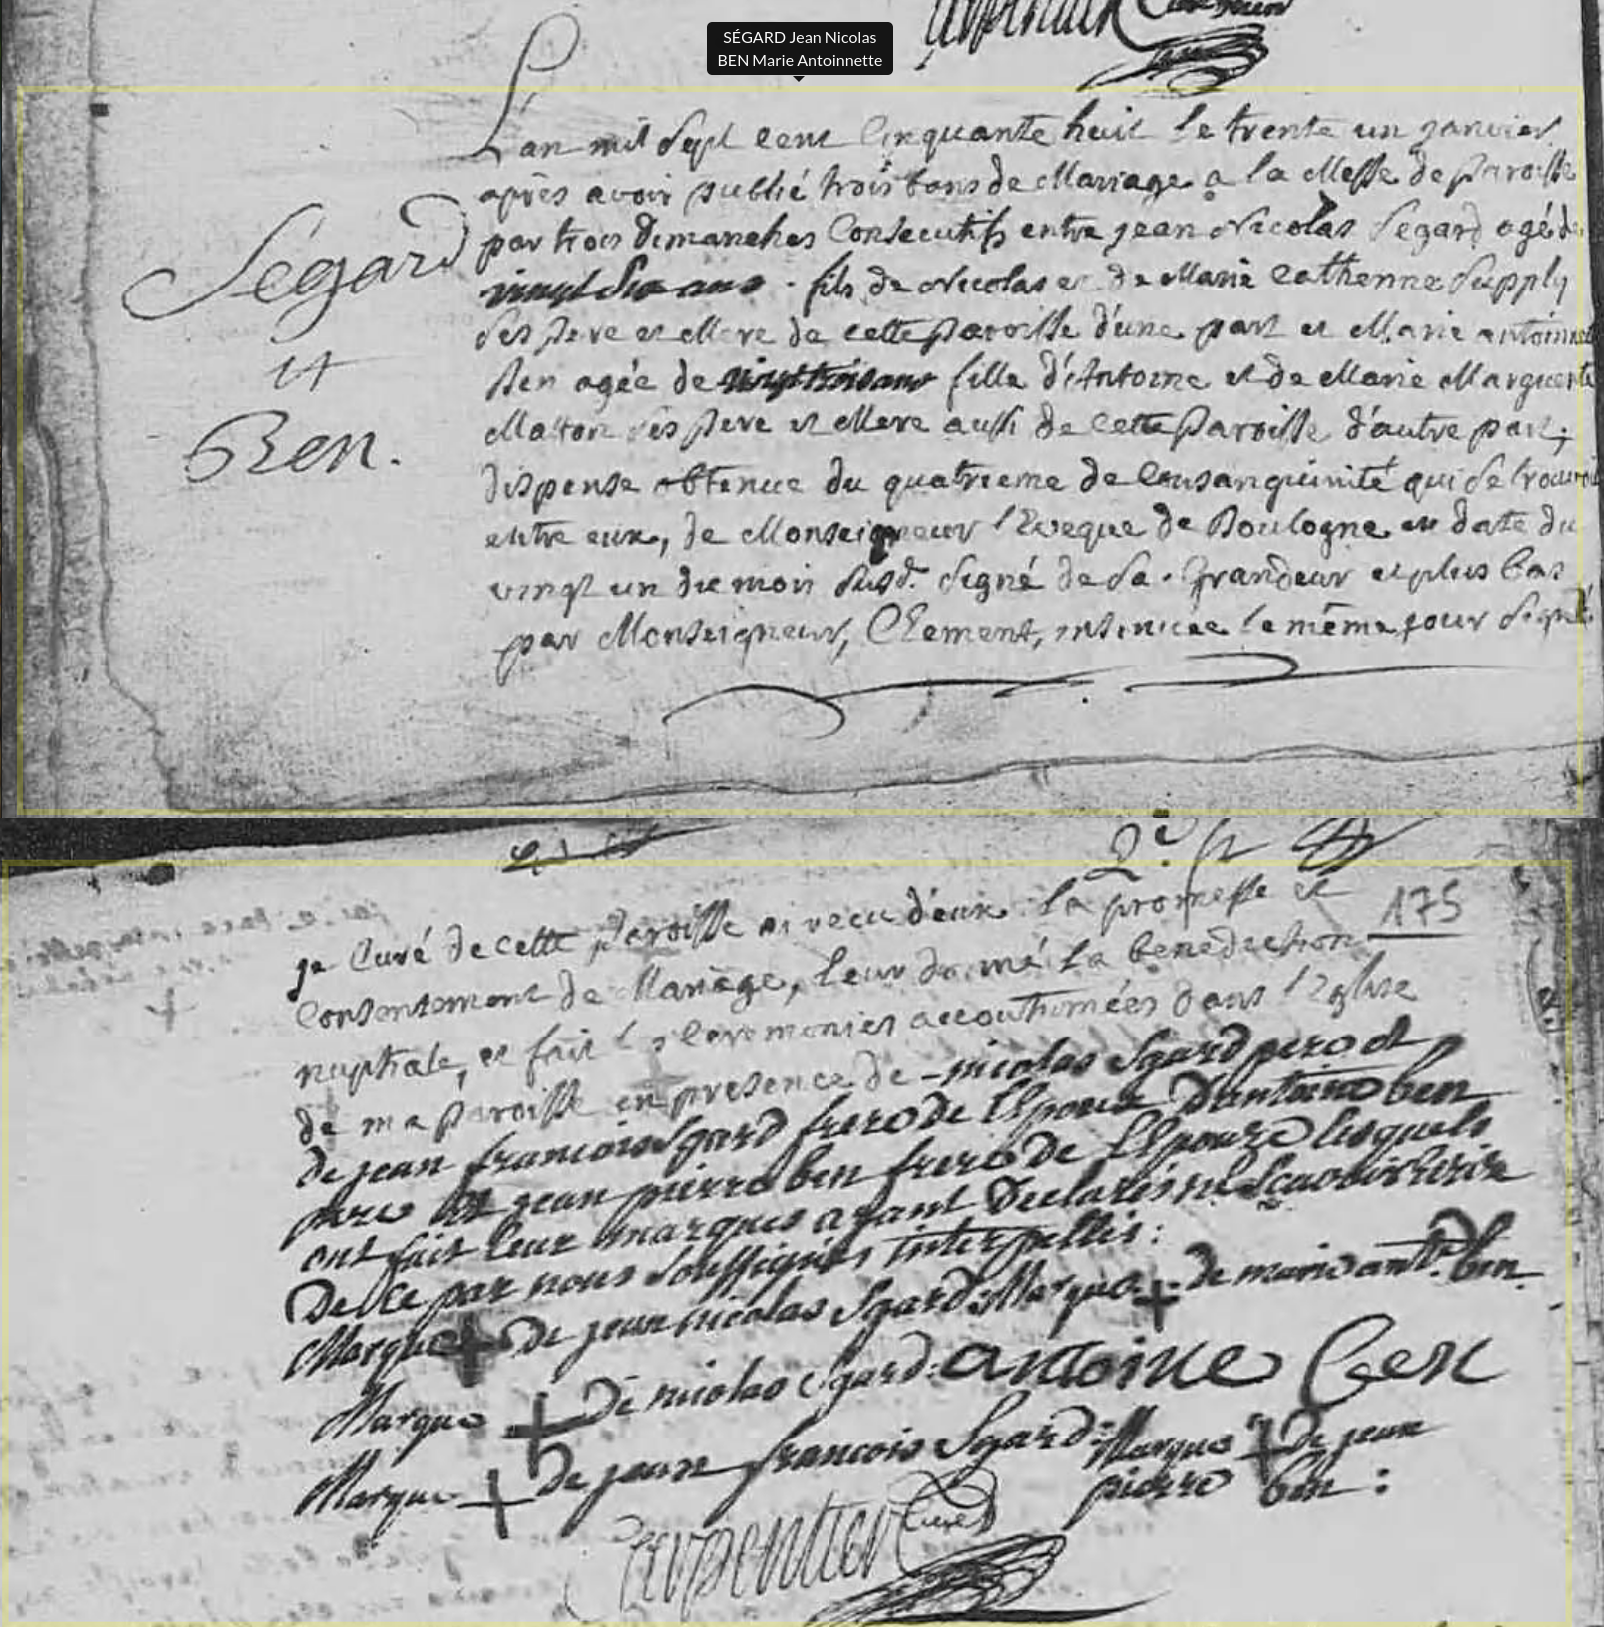 SÉGARD Jean Nicolas
BEN Marie Antoinnette
L'an mil Sept cent Cinquante huit le trente un janvier
après avoir publié trois bans de Mariage a la Messe de paroisse
par trois Dimanches Consecutifs entre jean Nicolas Segard agé de
vingt Six ans . fils de Nicolas et de Marie Catherine Supply
Ses pere et Mere de cette paroisse d'une part et Marie antoinnette
Ben agée de vingt trois ans fille d'Antoine et de Marie Marguerite
ses pere et Mere aussi de cette Paroisse d'autre part;
dispense obtenue du quatrieme de Consanguinité qui se trouvoit
entre eux, de Monseigneur l'Eveque de Boulogne en date du
vingt un du mois susd. Signé de Sa . Grandeur et plus bas
par Monseigneur, Clement, insinuee le même jour Signé
Ségard
et
Ben.
175
je Curé de cette Paroisse ai recu d'eux la promesse et
Consentement de Mariage, leur donné la benediction
nuptiale, et fait les Ceremonies accoutumées dans l'Eglise
de ma Paroisse en presence de nicolas Sgard pere et
de jean francois Sgard frere de l'Epoux D'antoine ben
pere et jean pierre ben frere de l'Epouze lesquels
ont fait leur marques ayant Declarés ne Scavoir Ecrire
De ce par nous soussignés interpellés :
Marque + De jean nicolas Sgard : Marque + de marie ant. ben
Marque + De nicolas Sgard : antoine Ben
Marque + de jean francois Sgard : Marque + De jean
pierre ben :
Carpentier Curé